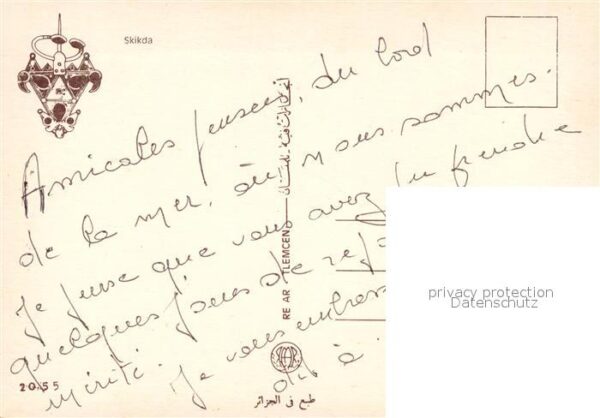 Skikda
Amicales pensées, du bord
de la mer, où nous sommes.
Je pense que vous avez pu prendre
quelques jours de
mérité. Je vous embrasse
20.55
RE AR TLEMCEN
طبع في الجزائر
privacy protection
Datenschutz